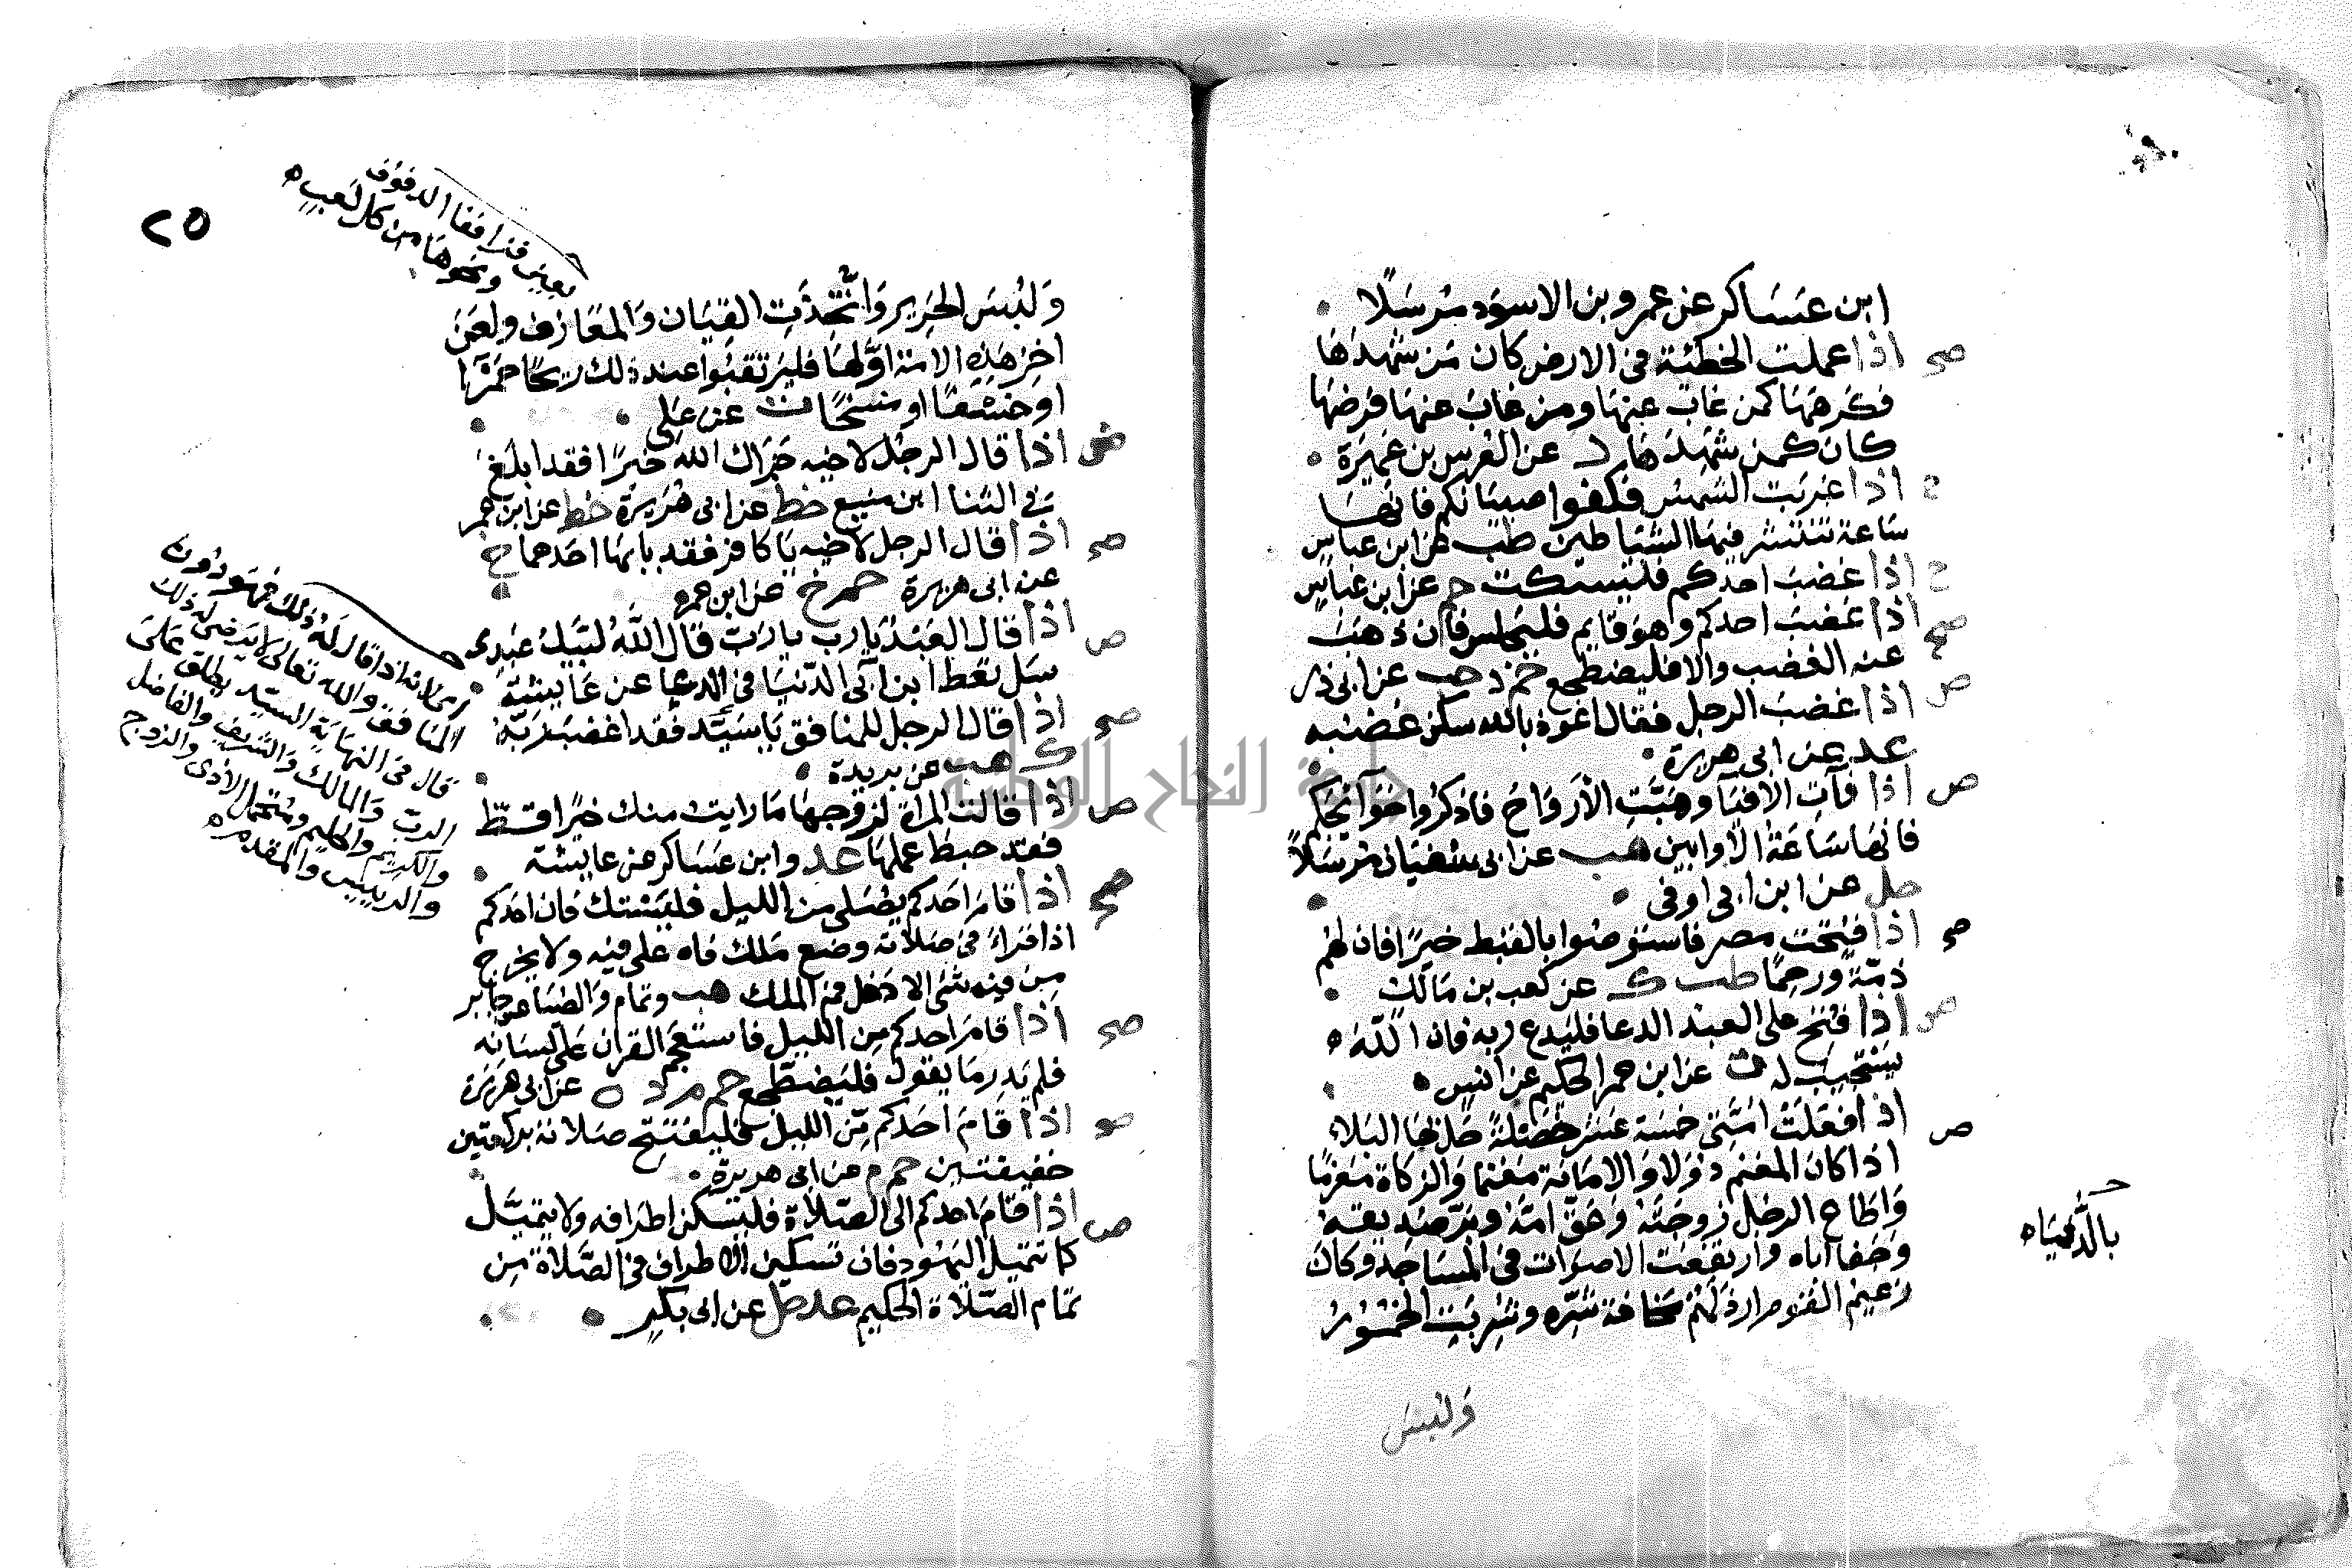 ابن عساكر عن عمرو بن الاسود مرسلا
صح اذا عملت الخطئة في الارض كان من شهدها
فكرهها كمن غاب عنها ومن غاب عنها فرضها
كان كمن شهدها د عن العرس بن عميرة
ح اذا غربت الشمس فكفوا صبيانكم فانها
ساعة تنتشر فيها الشياطين طب عن ابن عباس
ح اذا غضب احدكم فليسكت حم عن ابن عباس
صح اذا غضب احدكم وهو قايم فليجلس فان ذهب
عنه الغضب والا فليضطجع حم د حب عن ابي ذر
ص اذا غضب الرجل فقال اعوذ بالله سكن غضبه
عد عن ابي هريرة
ص اذا فآت الافيا وهبت الارواح فاذكروا حوآيجكم
فانها ساعة الاوابين هب عن ابي سفيان مرسلا
حل عن ابن ابي اوفى
صح اذا فتحت مصر فاستوصوا بالقبط خيرا فان لهم
ذمة ورحما طب ك عن كعب بن مالك
ص اذا فتح على العبد الدعا فليدع ربه فان الله
يستجيب له ت عن ابن عمر الحكيم عن انس
ص اذا فعلت امتي خمسة عشر خصلة حل بها البلاء
اذا كان المغنم دولا والامانة مغنما والزكاة مغرما
واطاع الرجل زوجته وعق امه وبر صديقه
وجفا اباه وارتفعت الاصوات في المساجد وكان
زعيم القوم ارذلهم مخافة شره وشربت الخمور
بالدعياه
ولبس
٢٥
يعني فذا ففا الدفوف
ونحوها من كل لعب
ولبس الحرير واتخذت القيان والمعازف ولعن
اخر هذه الامة اولها فليرتقبوا عند ذلك ريحا حمرآ
او خسفا او مسخا ت عن علي
ض اذا قال الرجل لاخيه جزاك الله خيرا فقد ابلغ
في الثنا ابن منيع خط عن ابي هريرة خط عن ابن عمر
صح اذا قال الرجل لاخيه يا كافر فقد با بها احدهما خ
عن ابي هريرة حم خ عن ابن عمر
ص اذا قال العبد يا رب يا رب قال الله لبيك عبدي
سل تعط ابن ابي الدنيا في الدعا عن عايشة
صح اذا قال الرجل للمنافق يا سيد فقد اغضب ربه
ك هب عن بريدة
ص اذا قالت المراة لزوجها ما رايت منك خيرا قط
فقد حبط عملها عد وابن عساكر عن عايشة
صح اذا قام احدكم يصلي من الليل فليستك فان احدكم
اذا قراء في صلاته وضع ملك فاه على فيه ولا يخرج
من فيه شي الا دخل فم الملك هب وتمام والضيا عن جابر
صح اذا قام احدكم من الليل فاستعجم القران على لسانه
فلم يدر ما يقول فليضطجع حم م د ه عن ابي هريرة
صح اذا قام احدكم من الليل فليفتتح صلاته بركعتين
خفيفتين حم م عن ابي هريرة
ص اذا قام احدكم الى الصلاة فليسكن اطرافه ولا يتميل
كما تتميل اليهود فان تسكين الاطراف في الصلاة من
تمام الصلاة الحكيم عد حل عن ابي بكر
لانه اذا قال له ذلك فهو دون
المنافق والله تعالى لا يرضى له ذلك
قال في النهاية السيد يطلق على
الرب والمالك والشريف والفاضل
والكريم والحليم ومتحمل الاذى والزوج
والرييس والمقدم